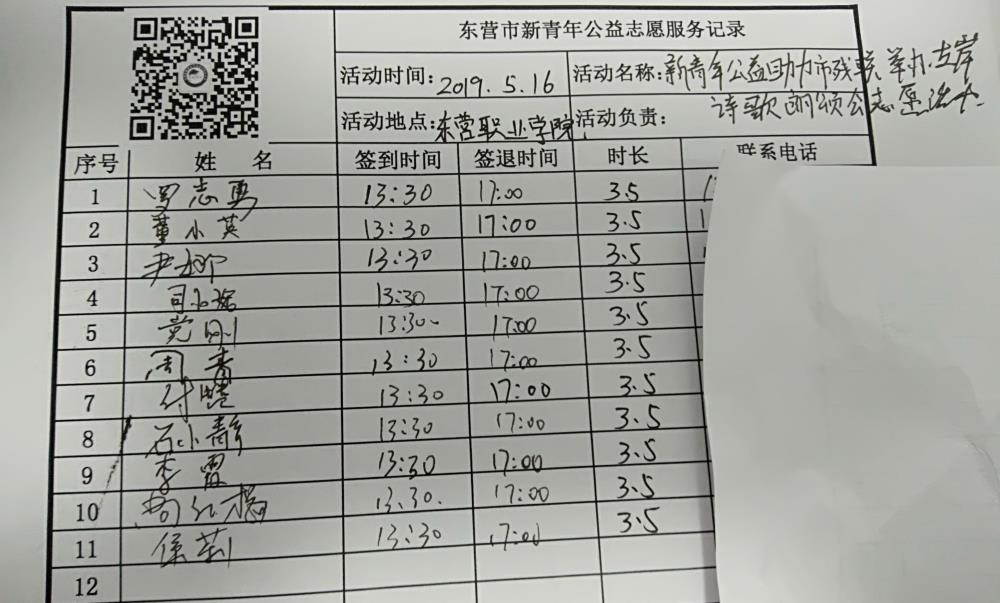 东营市新青年公益志愿服务记录
活动时间: 2019.5.16 活动名称: 新青年公益助力市残联举办左岸
诗歌朗颂公志愿活动
活动地点: 东营职业学院 活动负责:
序号 姓名 签到时间 签退时间 时长 联系电话
1 罗志勇 13:30 17:00 3.5
2 董小英 13:30 17:00 3.5
3 尹 13:30 17:00 3.5
4 13:30 17:00 3.5
5 党刚 13:30 17:00 3.5
6 周青 13:30 17:00 3.5
7 付 13:30 17:00 3.5
8 石小静 13:30 17:00 3.5
9 李霞 13:30 17:00 3.5
10 13.30. 17:00 3.5
11 侯莉 13:30 17:00 3.5
12